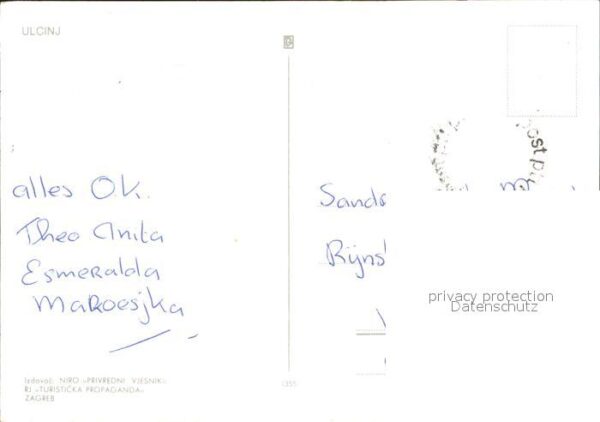 ULCINJ
alles O.K.
Theo Anita
Esmeralda
Maroesjka
Izdavač: NIRO »PRIVREDNI VJESNIK«
RJ »TURISTIČKA PROPAGANDA«
ZAGREB
1355
post
Sands
Rijns
privacy protection
Datenschutz